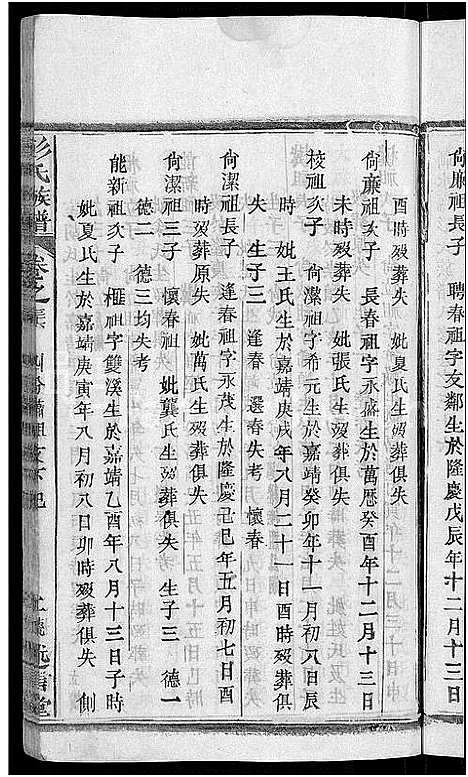 尙廉祖長子 聘春祖字友鄰生於隆慶戊辰年十二月十三日
酉時殁葬失 妣夏氏生殁葬俱失
尙廉祖次子 長春祖字永盛生於萬曆癸酉年十二月十三日
未時殁葬失 妣張氏生殁葬俱失
棱祖次子 尙潔祖字希元生於嘉靖癸卯年十一月初八日辰
時 妣王氏生於嘉靖庚戌年八月二十一日酉時殁葬俱
失 生子三 逢春 選春失考 懷春
尙潔祖長子 逢春祖字永茂生於隆慶己巳年五月初七日酉
時殁葬原失 妣萬氏生殁葬俱失
尙潔祖三子 懷春祖 妣龔氏生殁葬俱失 生子三 德一
德二 德三均失考
能新祖次子 榧祖字雙溪生於嘉靖乙酉年八月十三日子時
妣夏氏生於嘉靖庚寅年八月初八日卯時殁葬俱失 側
彭氏族譜 卷之
堂